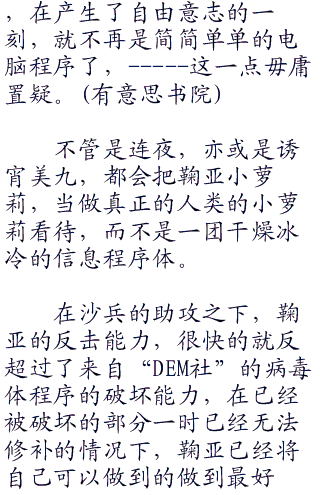 ，在产生了自由意志的一
刻，就不再是简简单单的电
脑程序了，-----这一点毋庸
置疑。(有意思书院)
不管是连夜，亦或是诱
宵美九，都会把鞠亚小萝
莉，当做真正的人类的小萝
莉看待，而不是一团干燥冰
冷的信息程序体。
在沙兵的助攻之下，鞠
亚的反击能力，很快的就反
超过了来自“DEM社”的病毒
体程序的破坏能力，在已经
被破坏的部分一时已经无法
修补的情况下，鞠亚已经将
自己可以做到的做到最好